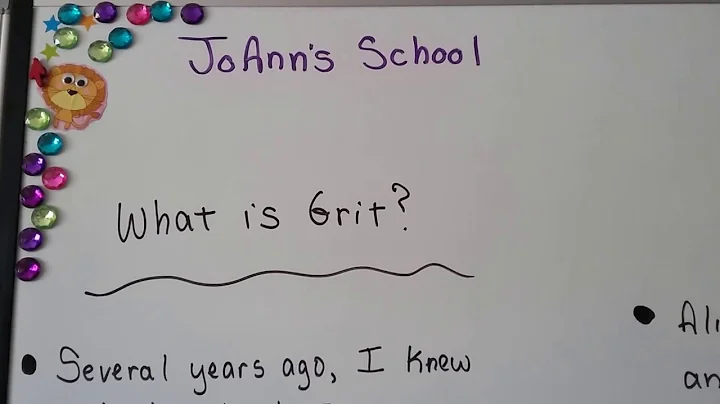 JoAnn's School
What is Grit?
Several years ago, I knew
an